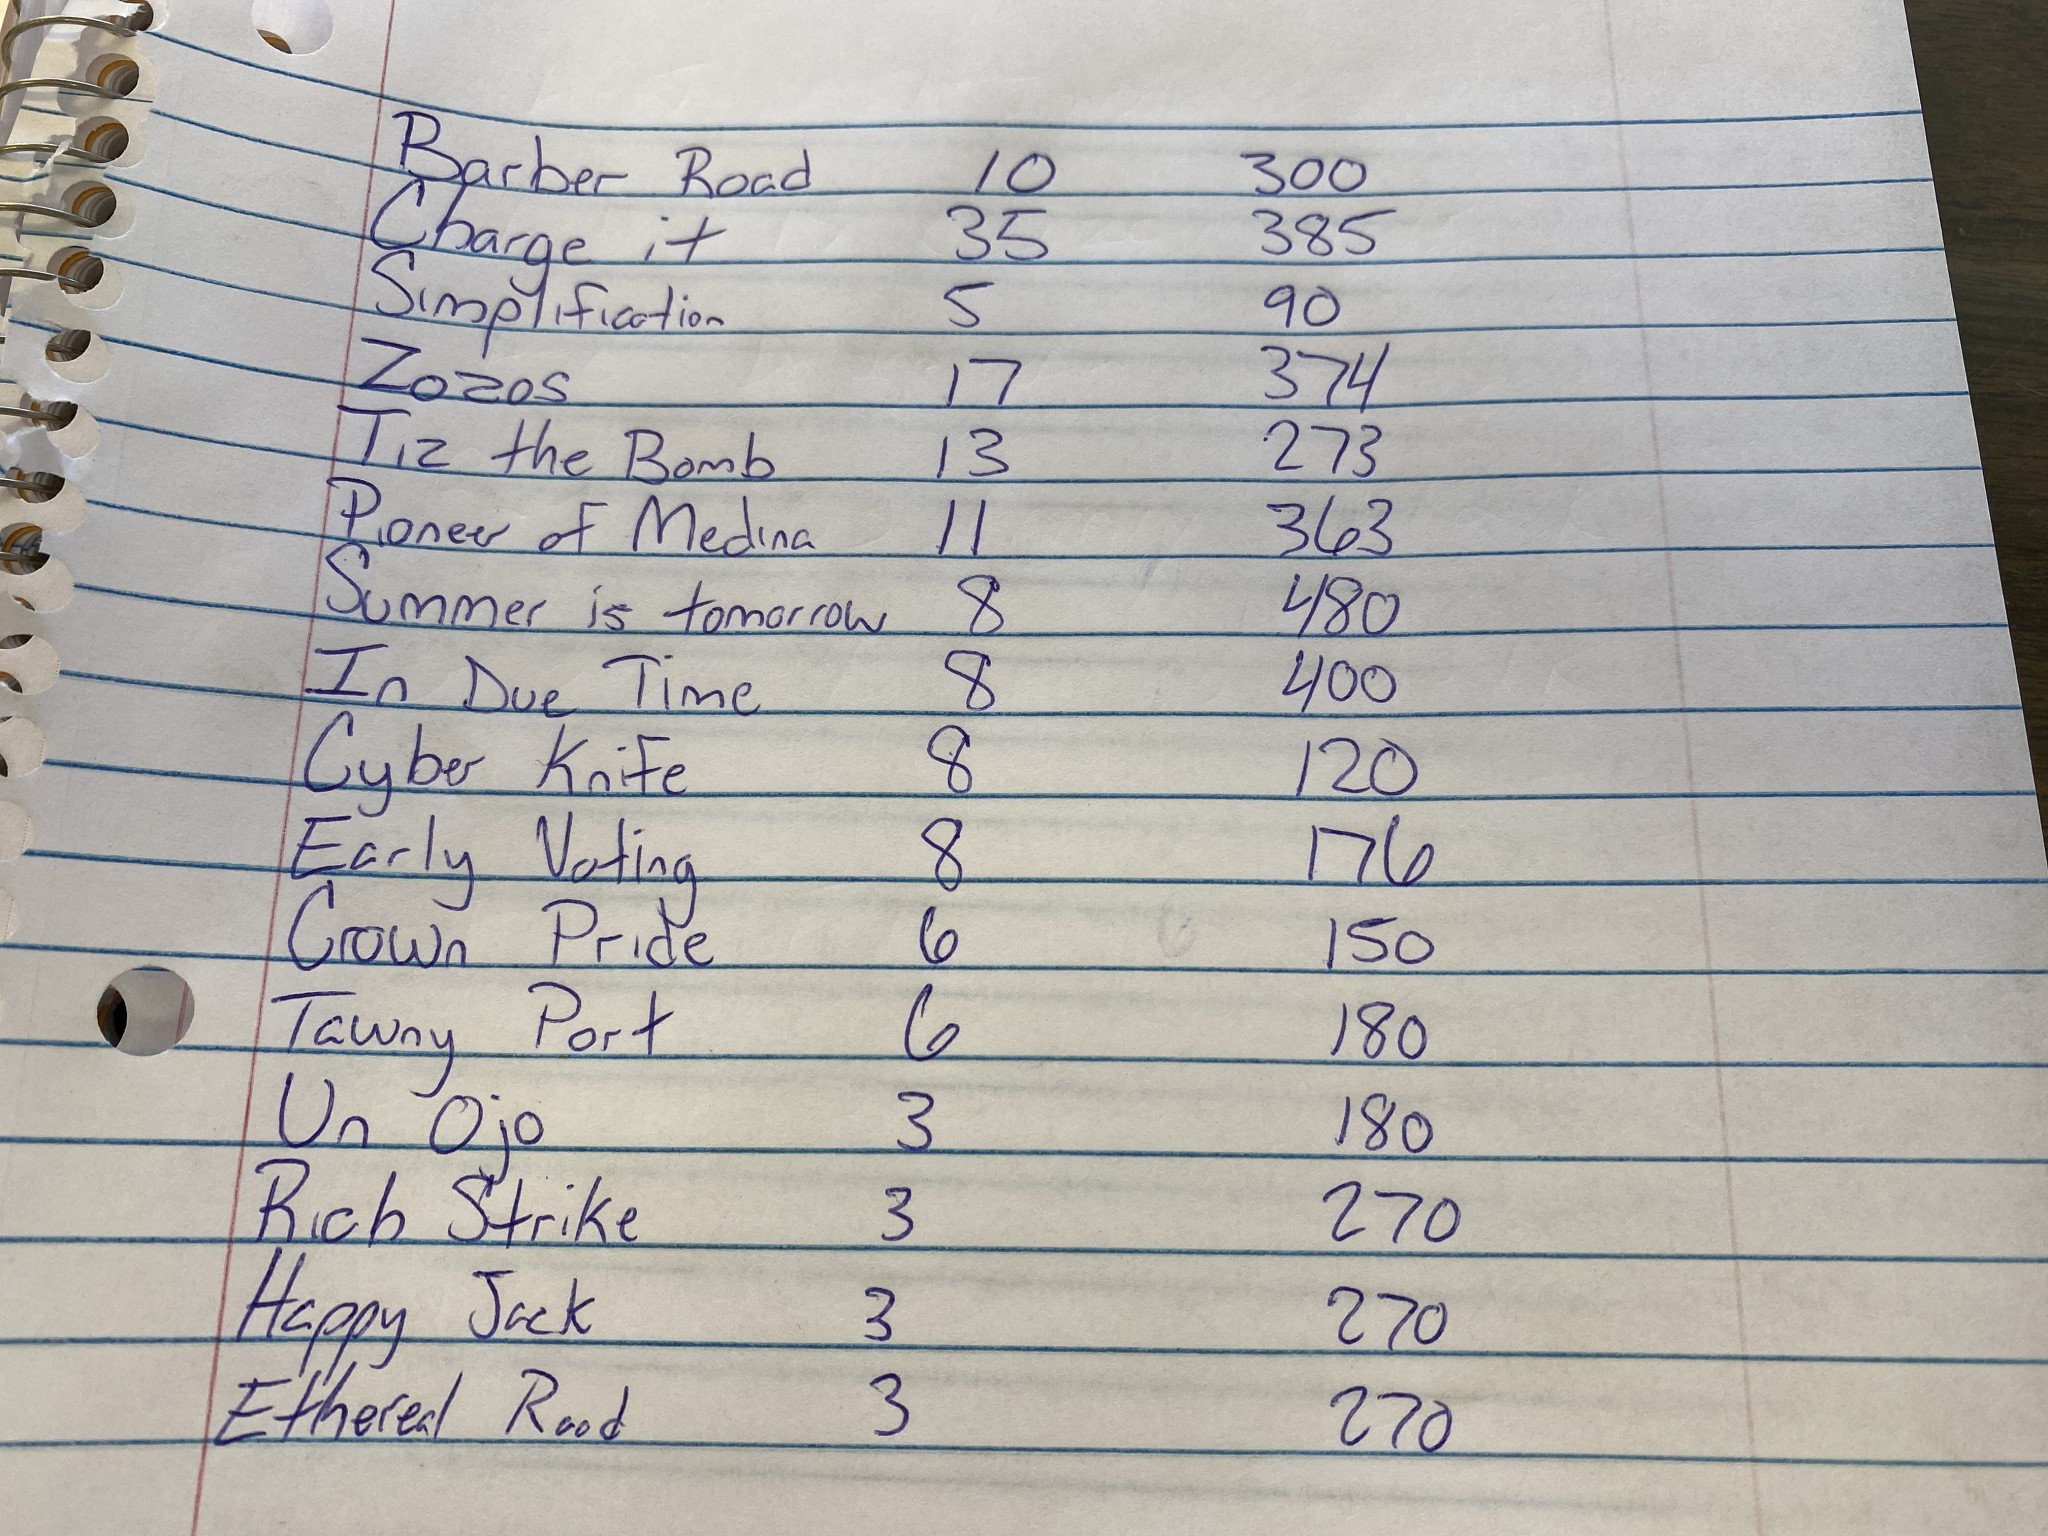 Barber Road 10 300
Charge it 35 385
Simplification 5 90
Zozos 17 374
Tiz the Bomb 13 273
Pioneer of Medina 11 363
Summer is tomorrow 8 480
In Due Time 8 400
Cyber Knife 8 120
Early Voting 8 176
Crown Pride 6 150
Tawny Port 6 180
Un Ojo 3 180
Rich Strike 3 270
Happy Jack 3 270
Ethereal Road 3 270